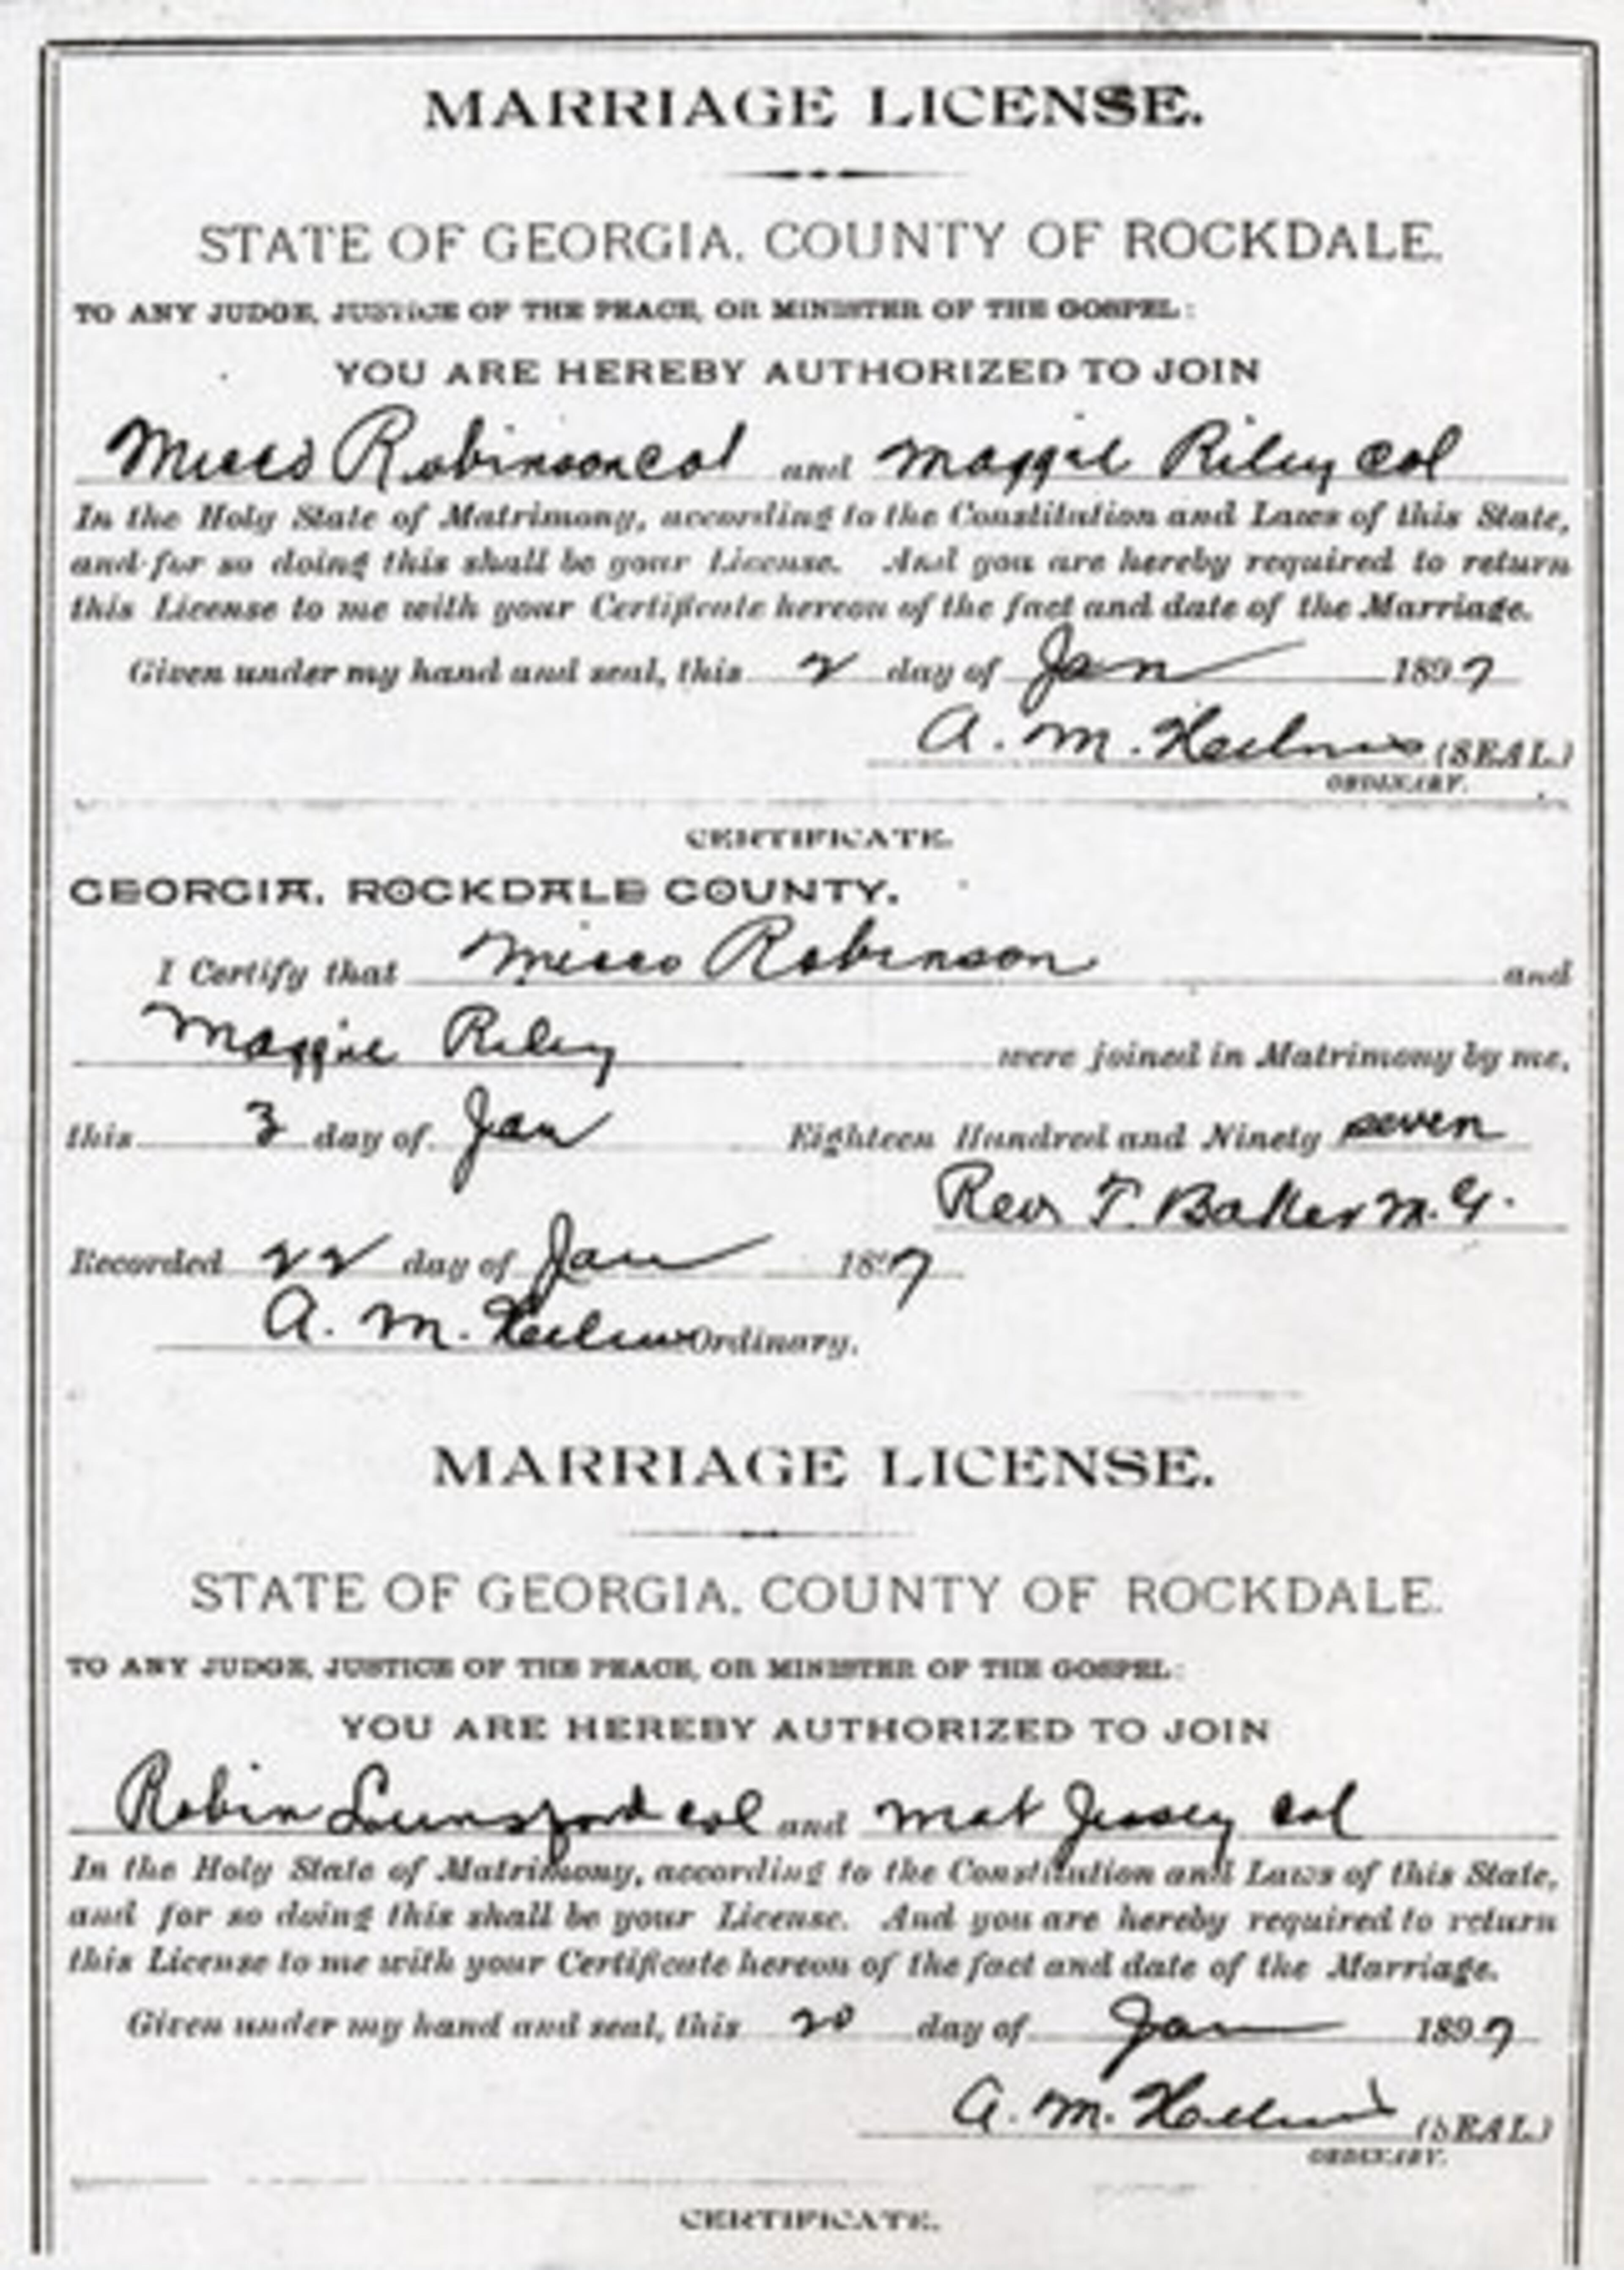 MARRIAGE LICENSE.
STATE OF GEORGIA, COUNTY OF ROCKDALE.
TO ANY JUDGE, JUSTICE OF THE PEACE, OR MINISTER OF THE GOSPEL:
YOU ARE HEREBY AUTHORIZED TO JOIN
Robinson col and Maggie Riley col
In the Holy State of Matrimony, according to the Constitution and Laws of this State,
and for so doing this shall be your License. And you are hereby required to return
this License to me with your Certificate hereon of the fact and date of the Marriage.
Given under my hand and seal, this 2 day of Jan 1897
A. M. (SEAL.)
ORDINARY.
CERTIFICATE.
GEORGIA, ROCKDALE COUNTY.
I Certify that Robinson and
Maggie Riley were joined in Matrimony by me,
this 3 day of Jan Eighteen Hundred and Ninety seven
Rev T. Baker M. G.
Recorded 22 day of Jan 1897
A. M. Ordinary.
MARRIAGE LICENSE.
STATE OF GEORGIA, COUNTY OF ROCKDALE.
TO ANY JUDGE, JUSTICE OF THE PEACE, OR MINISTER OF THE GOSPEL:
YOU ARE HEREBY AUTHORIZED TO JOIN
Robin Lunsford col and Mat Jessey col
In the Holy State of Matrimony, according to the Constitution and Laws of this State,
and for so doing this shall be your License. And you are hereby required to return
this License to me with your Certificate hereon of the fact and date of the Marriage.
Given under my hand and seal, this 20 day of Jan 1897
A. M. (SEAL.)
ORDINARY.
CERTIFICATE.